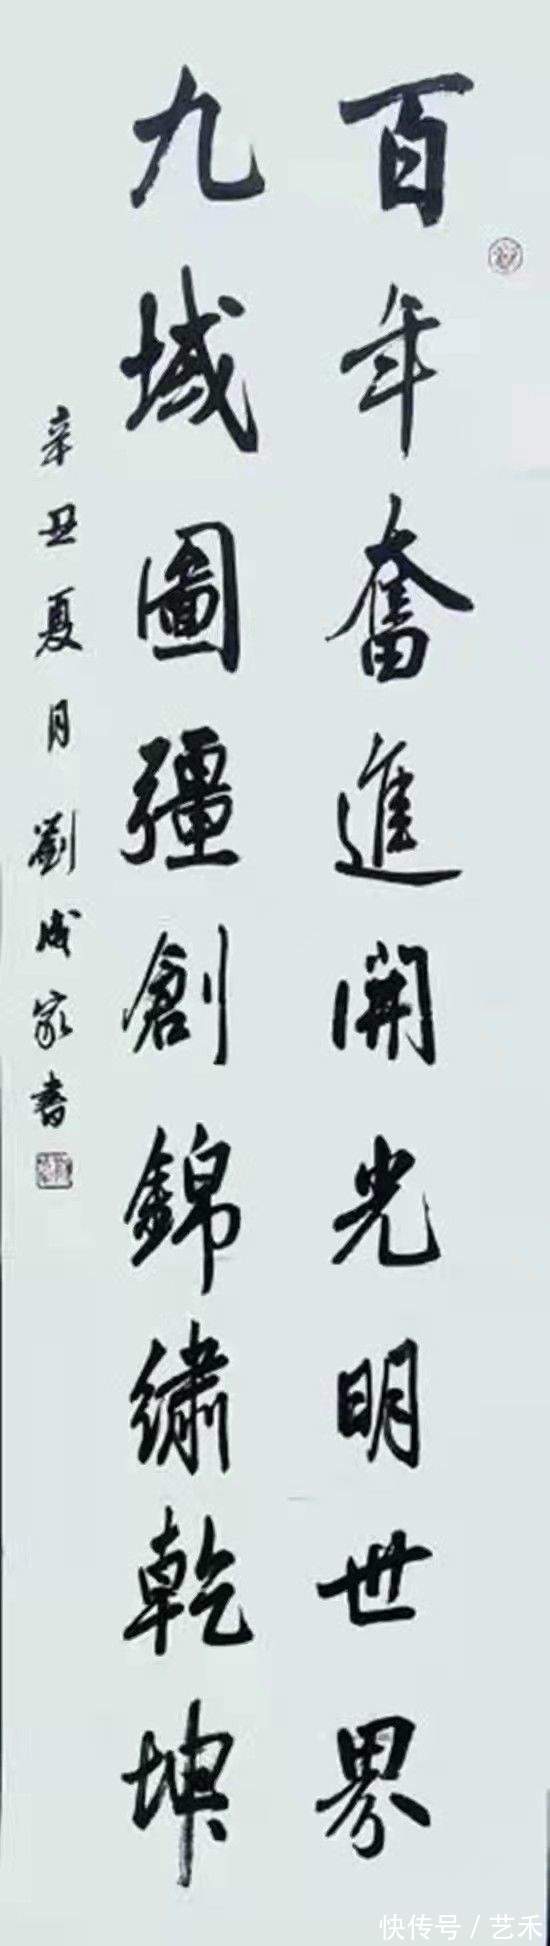 百年奮進開光明世界
九域圖彊創錦繡乾坤
辛丑夏月劉成家書
快传号 / 艺禾